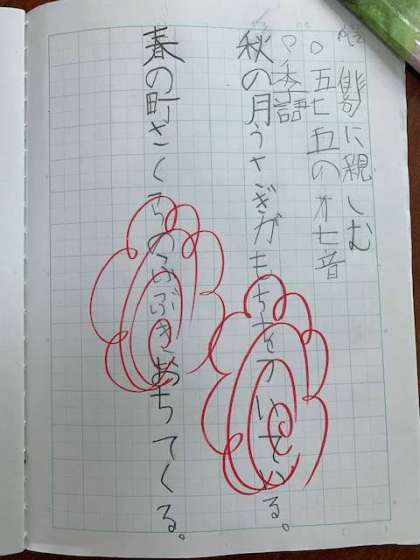 俳句に親しむ
○五七五の十七音
○季語
秋の月うさぎがもちをついている。
春の町さくらのふぶきおちてくる。